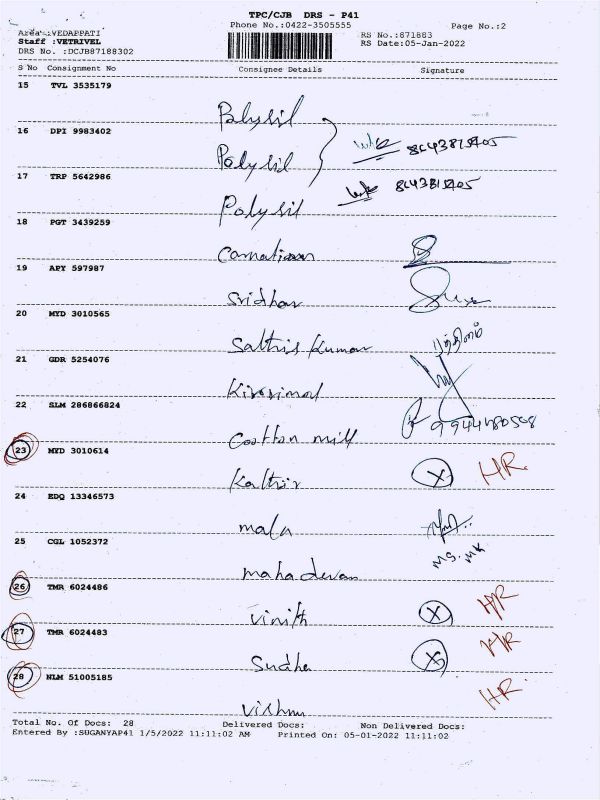 TPC/CJB DRS - P41
Phone No.:0422-3505555 Page No.:2
Area :VEDAPPATI
Staff :VETRIVEL RS No.:871883
DRS No. :DCJB87188302 RS Date:05-Jan-2022
S No Consignment No Consignee Details Signature
15 TVL 3535179
Polysil
16 DPI 9983402
Polysil
17 TRP 5642986
Polysil
18 PGT 3439259
Carnation
19 APY 597987
Sridhar
20 MYD 3010565
Sathis Kumar
21 GDR 5254076
22 SLM 286866824
9944480508
Cotton mill
23 MYD 3010614
Kathir X HR
24 EDQ 13346573
mala
25 CGL 1052372
mahadevan
26 TMR 6024486
Vinith X HR
27 TMR 6024483
Sudha X HR
28 NLM 51005185
Vishnu HR
Total No. Of Docs: 28 Delivered Docs: Non Delivered Docs:
Entered By :SUGANYAP41 1/5/2022 11:11:02 AM Printed On: 05-01-2022 11:11:02